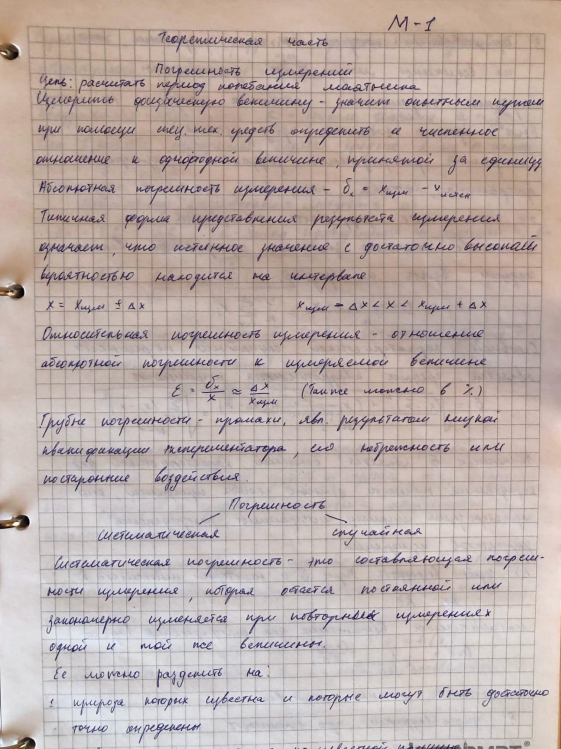 М-1
Теоретическая часть
Погрешность измерений
Цель: расчитать период колебания маятника
Измерить физическую величину - значит опытным путем
при помощи спец. тех. средств определить ее численное
отношение к однородной величине, принятой за единицу
Абсолютная погрешность измерения - δₓ = xизм - xистин
Типичная форма представления результата измерения
означает, что истинное значение с достаточно высокой
вероятностью находится на интервале
x = xизм ± Δx xизм - Δx < x < xизм + Δx
Относительная погрешность измерения - отношение
абсолютной погрешности к измеряемой величине
ε = δₓ/x ≈ Δx/xизм (Также можно в %)
Грубые погрешности - промахи, явл. результатом низкой
квалификации экспериментатора, его небрежность или
посторонние воздействия.
Погрешность
систематическая случайная
Систематическая погрешность - это составляющая погреш-
ности измерения, которая остается постоянной или
закономерно изменяется при повторных измерениях
одной и той же величины.
Ее можно разделить на:
1 природа которых известна и которые могут быть достаточно
точно определены
известной